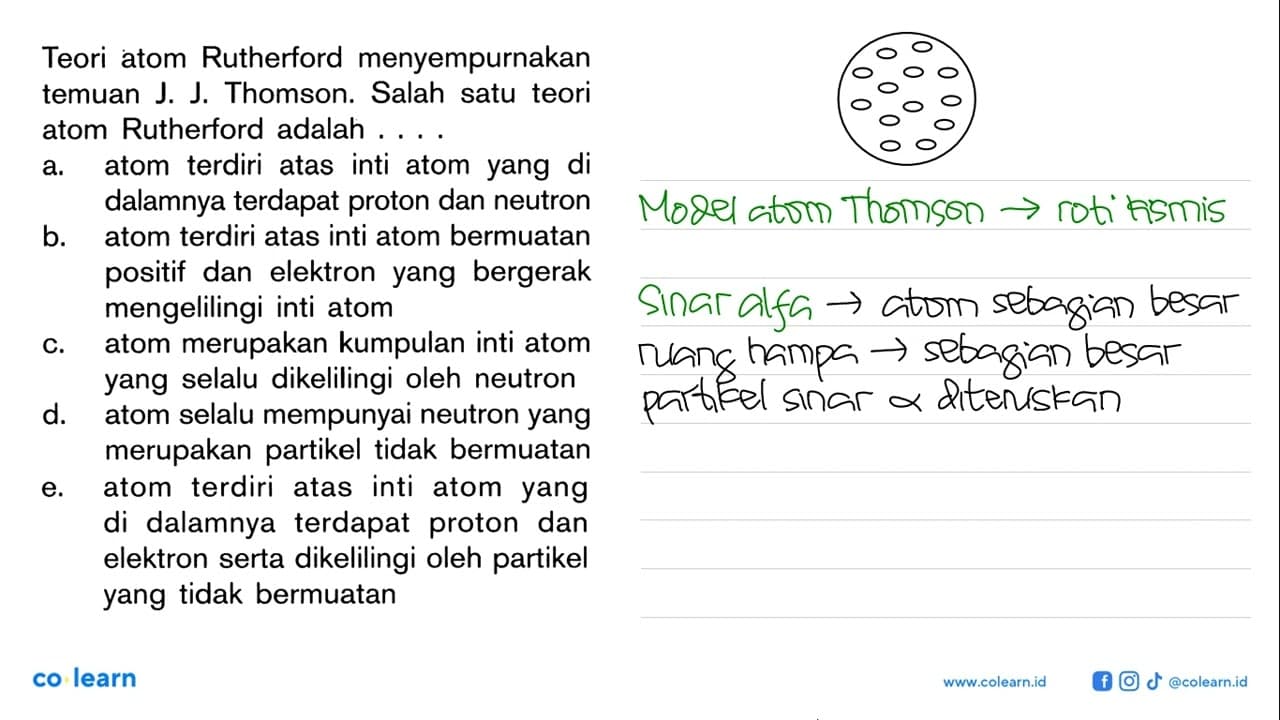 Teori atom Rutherford menyempurnakan
temuan J. J. Thomson. Salah satu teori
atom Rutherford adalah . . . .
a. atom terdiri atas inti atom yang di
dalamnya terdapat proton dan neutron
b. atom terdiri atas inti atom bermuatan
positif dan elektron yang bergerak
mengelilingi inti atom
c. atom merupakan kumpulan inti atom
yang selalu dikelilingi oleh neutron
d. atom selalu mempunyai neutron yang
merupakan partikel tidak bermuatan
e. atom terdiri atas inti atom yang
di dalamnya terdapat proton dan
elektron serta dikelilingi oleh partikel
yang tidak bermuatan
Model atom Thomson → roti kismis
Sinar alfa → atom sebagian besar
ruang hampa → sebagian besar
partikel sinar α diteruskan
co learn
www.colearn.id
@colearn.id